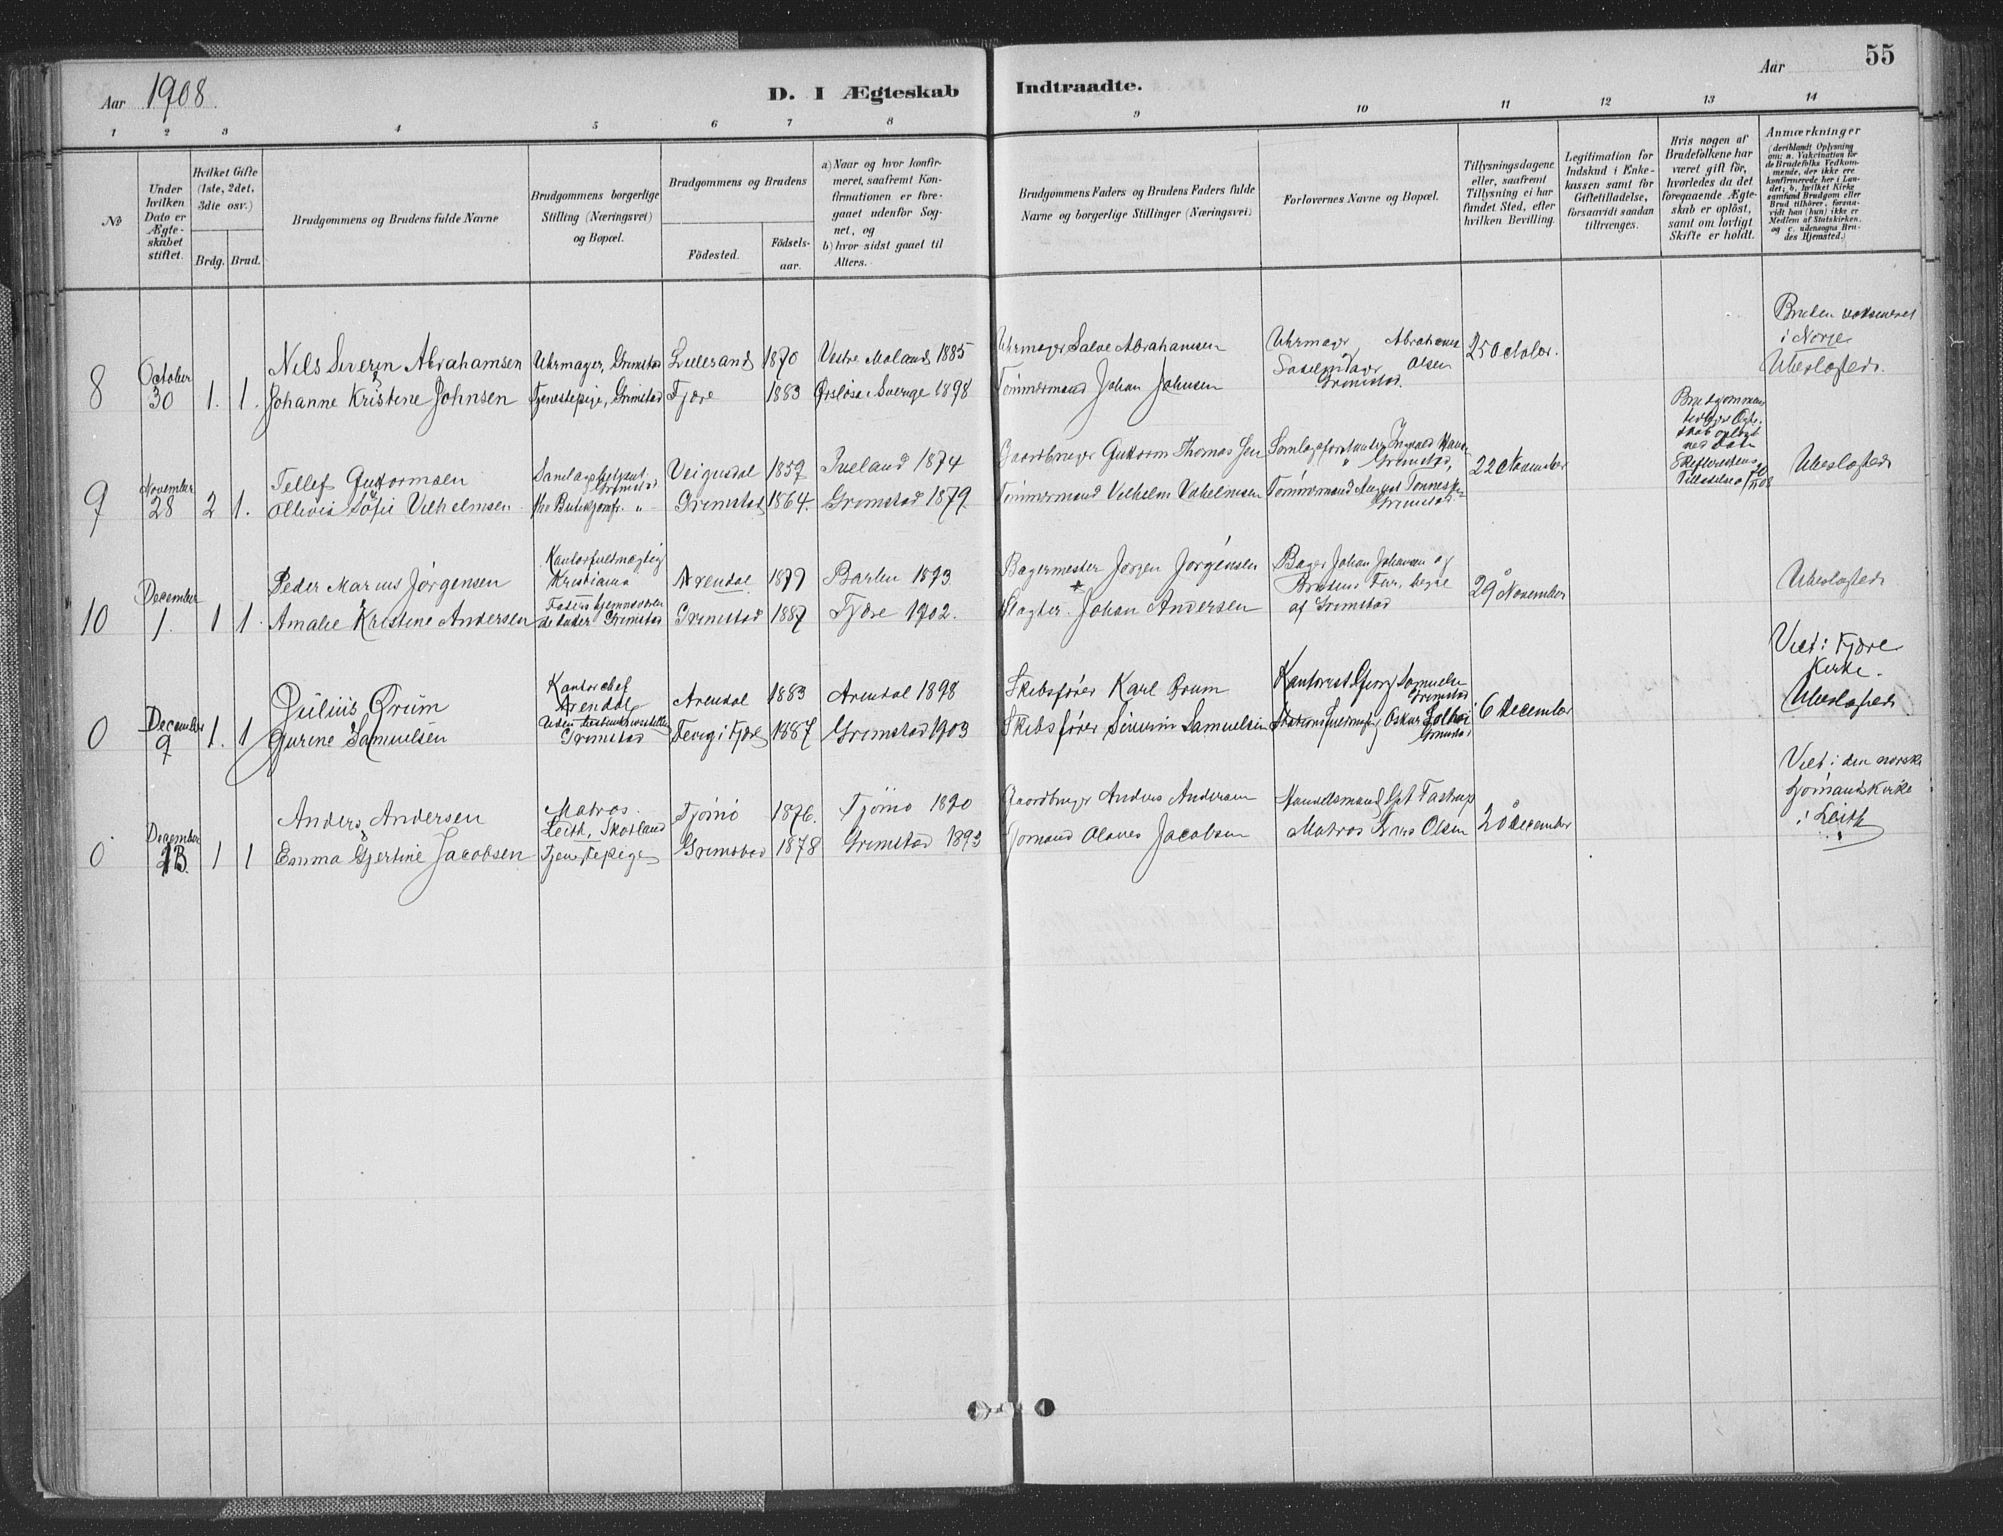 Aar 1908.
D. I Ægteskab Indtraadte.
Aar
55
1 2 3 4 5 6 7 8 9 10 11 12 13 14
No
Under hvilken Dato er Ægteskabet stiftet.
Hvilket Gifte (1ste, 2det, 3die osv.)
Brdg. Brud.
Brudgommens og Brudens fulde Navne
Brudgommens borgerlige Stilling (Næringsvei) og Bopæl.
Brudgommens og Brudens
Födested. Födsels-aar.
a) Naar og hvor konfirmeret, saafremt Konfirmationen er foregaaet udenfor Sognet, og
b) hvor sidst gaaet til Alters.
Brudgommens Faders og Brudens Faders fulde Navne og borgerlige Stillinger (Næringsvei)
Forlovernes Navne og Bopæl.
Tillysningsdagene eller, saafremt Tillysning ei har fundet Sted, efter hvilken Bevilling.
Legitimation for Indskud i Enkekassen samt for Giftetilladelse, forsaavidt saadan tiltrænges.
Hvis nogen af Brudefolkene har været gift för, hvorledes da det foregaaende Ægteskab er oplöst, samt om lovligt Skifte er holdt.
Anmærkninger (deriblandt Oplysning om: a. Vakcination for de Brudefolks Vedkommende, der ikke ere konfirmerede her i Landet; b. hvilket Kirkesamfund Brudgom eller Brud tilhörer, forsaavidt han (hun) ikke er Medlem af Statskirken, og c. udensogns Brudes Hjemsted.)
Bruden vakcineret i Norge
Ubeslægtede.
Nils Severin Abrahamsen Uhrmager, Grimstad Lillesand 1870 Vestre Moland 1885 Uhrmager Salve Abrahamsen Uhrmager Abrahams
8 October 30 1. 1. & Johanne Kristine Johnsen Tjenestepige, Grimstad Fjære 1883 Sverige 1898 Tömmermand Johan Johnsen Olsen Grimstad. 25 October.
Tellef Guttormsen Samlagsbetjent Grimstad Veigusdal 1859 Iveland 1874 Gaardbruger Guttorm Thomassen Samlagsforstander Grimstad, 22 November Ubeslægtede
9 November 28 2 1. & Olivia Sofie Vilhelmsen Grimstad 1864. Grimstad 1879. Tömmermand Vilhelm Vilhelmsen Tömmermand August Grimstad
Peder Marius Jörgensen Kontorfuldmægtig Kristiania Arendal 1877 1893 Bagermester Jörgen Jörgensen Bager Johan Johansen og Brudens Far, begge af Grimstad 29 November Ubeslægtede
10 December 1. 1 1. & Amalie Kristine Andersen Grimstad Grimstad 1887 Fjære 1902. Slagter Johan Andersen
Viet i Fjære Kirke.
Julius Brum Kontorchef Arendal Arendal 1883 Arendal 1898 Skibsfører Karl Brum Kontorist Georg Samuelsen Grimstad 6 December Ubeslægtede
0 December 9 1. 1 & Gurine Samuelsen Grimstad Fevig i Fjære 1887 Grimstad 1903 Skibsfører Severin Samuelsen Oskar Grimstad
Viet i den norske Sjømandskirke i Leith
Anders Andersen Matros Leith, Skotland Tjömö 1876. Tjömö 1890 Gaardbruger Anders Andersen Handelsmand 20 December
0 December 1 1 & Emma Gjertine Jacobsen Tjenestepige Grimstad 1878 Grimstad 1893 Sjømand Olaves Jacobsen Matros Olsen